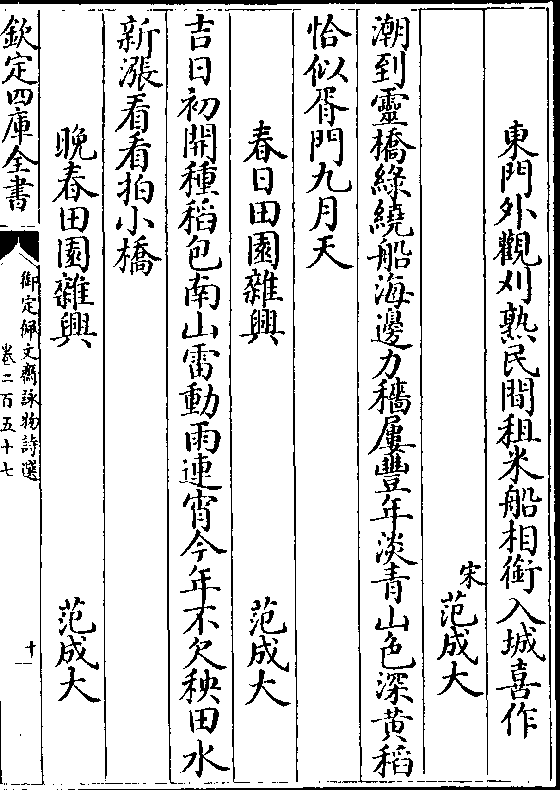 東門外觀刈熟民間租米船相銜入城喜作
宋范成大
潮到靈橋綠繞船海邊力穡屢豐年淡青山色深黃稻
恰似胥門九月天
春日田園雜興　范成大
吉日初開種稻包南山雷動雨連宵今年不欠秧田水
新漲看看拍小橋
晚春田園雜興　范成大
欽定四庫全書
御定佩文齋詠物詩選
卷二百五十七
十